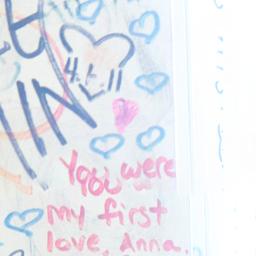 IN
You were
my first
love, Anna.